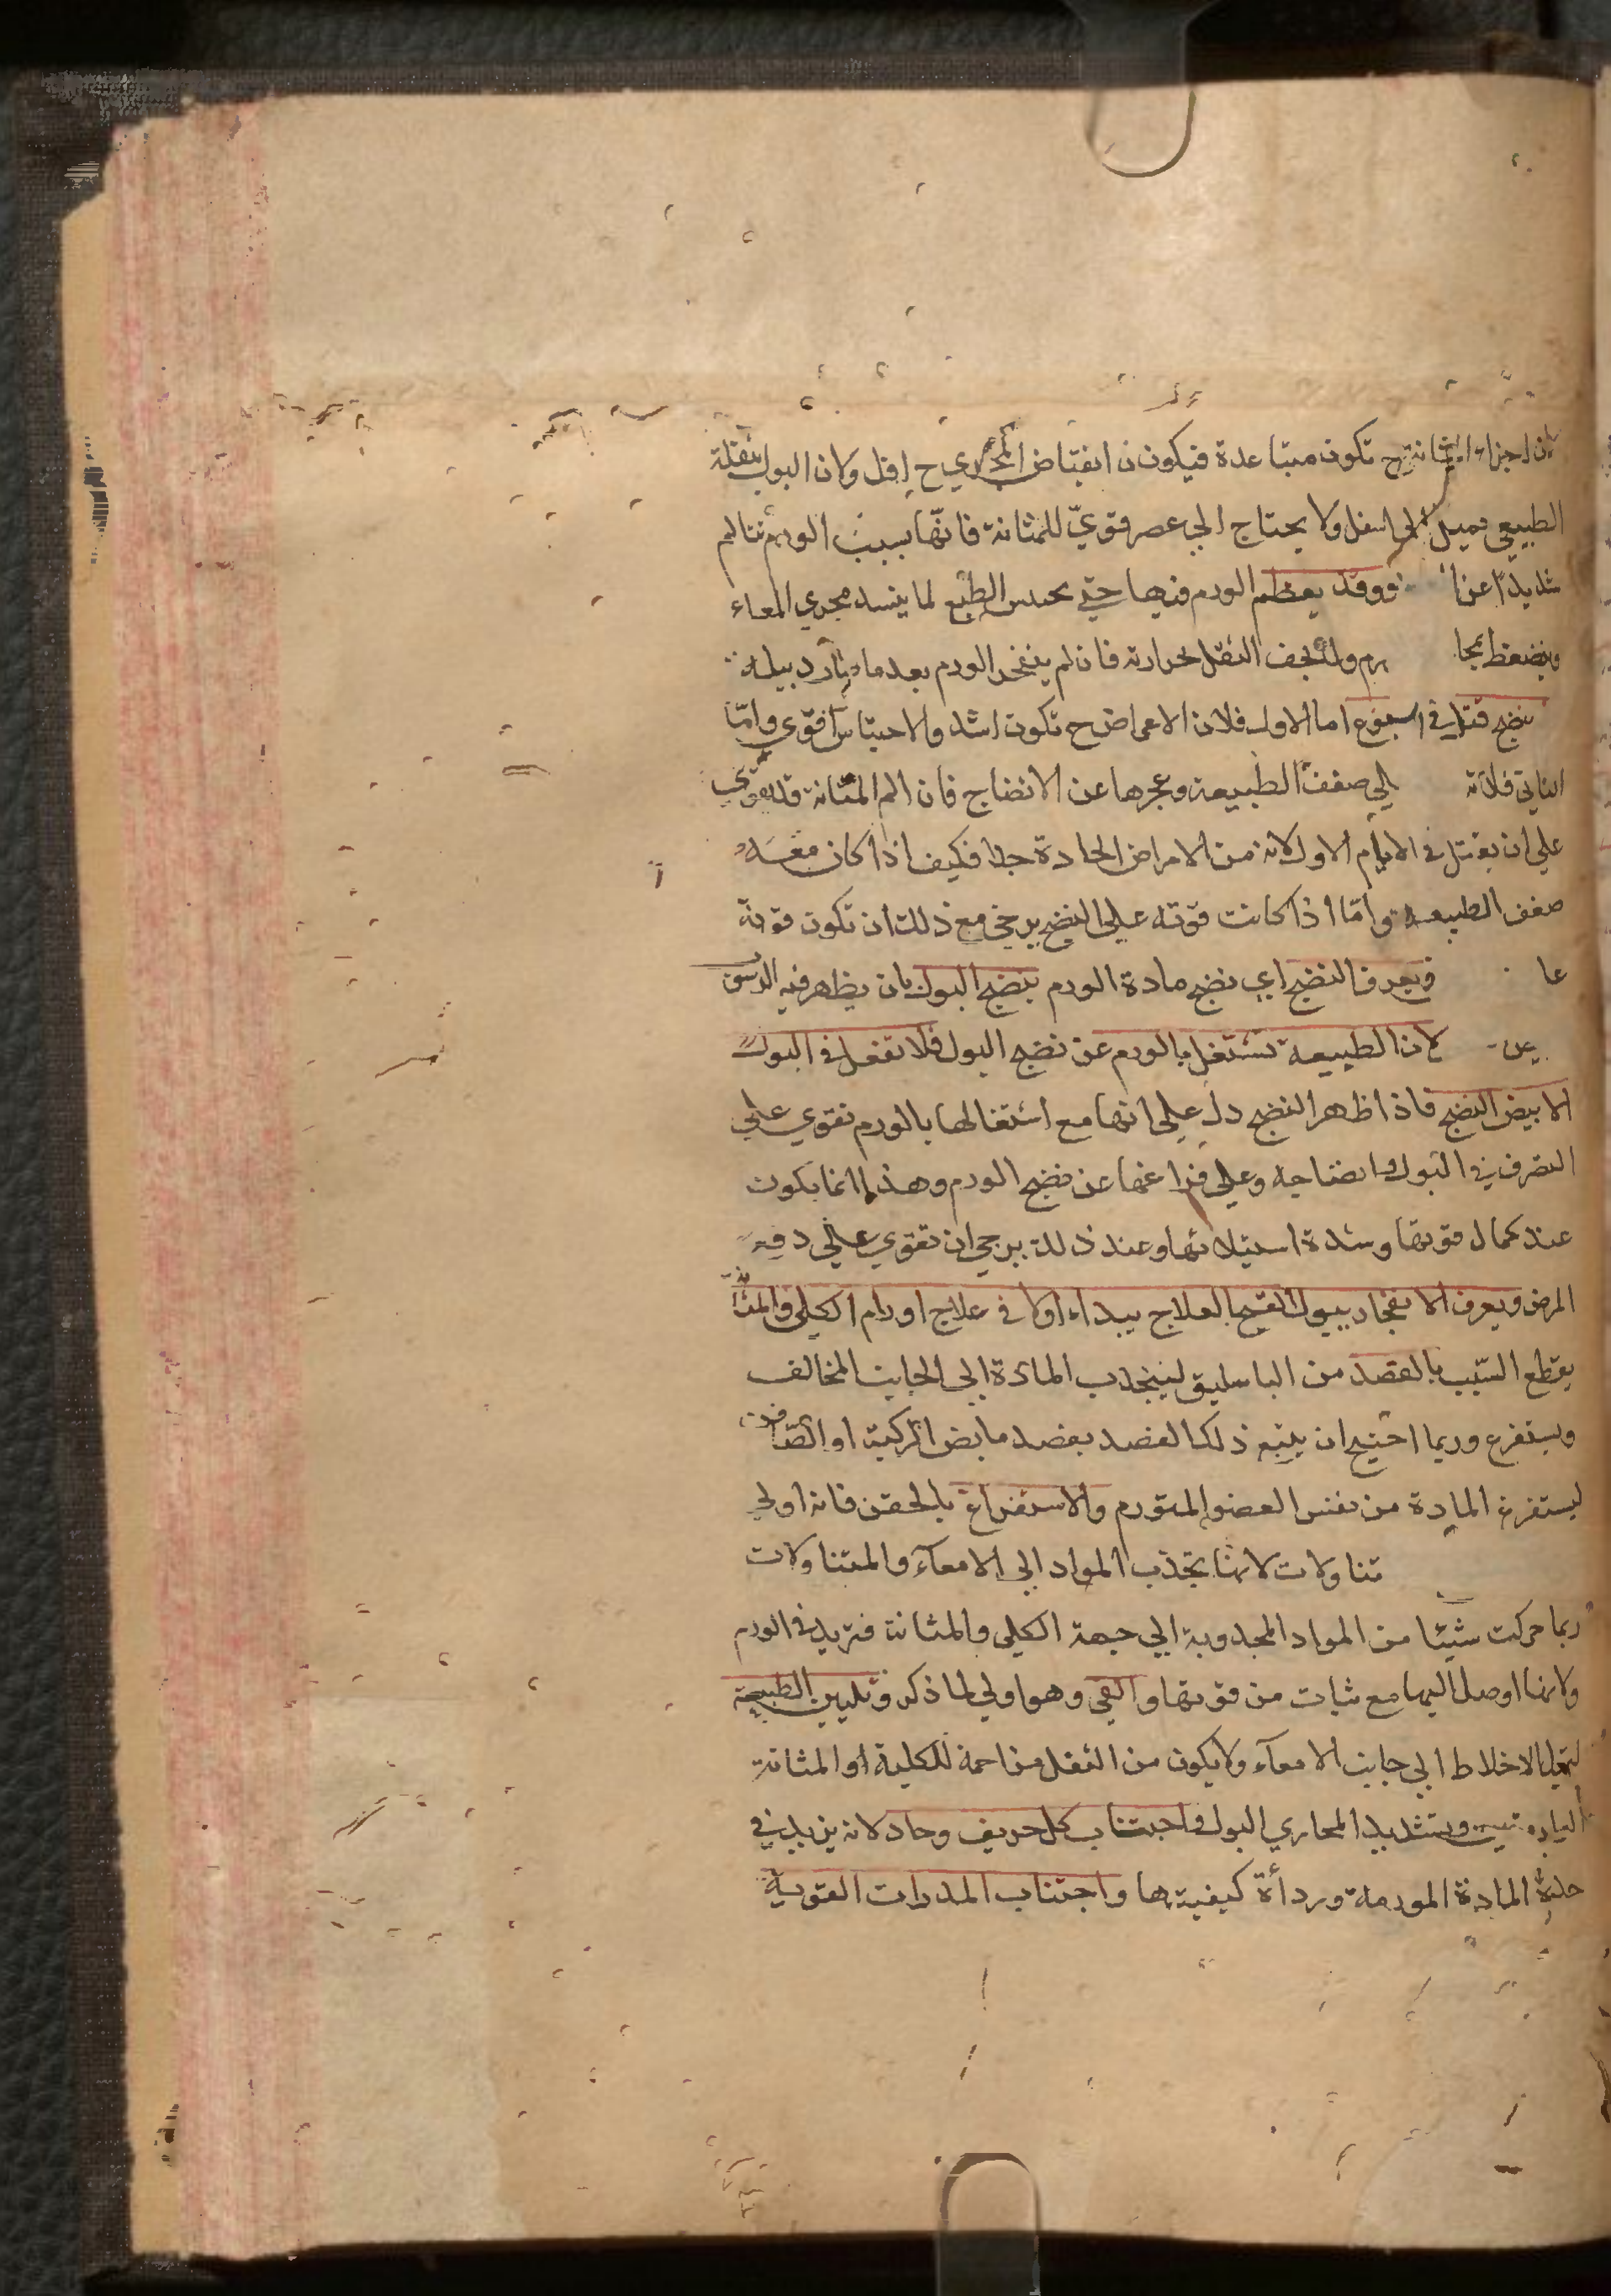 لان اجزاء المثانة ح تكون متباعدة فيكون انقباض المجري ح اقل ولان البول بثقله
الطبيعي يميل الي اسفل ولا يحتاج الي عصر قوي للمثانة فانها بسبب الورم تتالم
شديدا عن وقد يعظم الورم فيها حتي يحبس الطبع لما ينسد مجري المعاء
وينضغط بمجا ورم ولتجفف الثقل لحرارته فان لم ينفجر الورم بعد ما صار دبيلة
ينضج قتل في اسبوع اما الاول فلان الاعراض ح تكون اشد والاحتباس اقوي واما
الثاني فلانه الي ضعف الطبيعة وعجزها عن الانضاج فان الم المثانة قد يقوي
علي ان يقتل في الايام الاول لانه من الامراض الحادة جدا فكيف اذا كان معه
ضعف الطبيعه واما اذا كانت قوته علي النضج يرجي مع ذلك ان تكون قوية
عا ويعرف النضج اي نضج مادة الورم بنضج البول بان يظهر فيه الرسوب
لان الطبيعة تشتغل بالورم عن نضج البول فلا تفعل في البول
الابيض النضج فاذا ظهر النضج دل علي انها مع اشتغالها بالورم تقوي علي
التصرف في البول وانضاجه وعلي فراغها عن نضج الورم وهذا انما يكون
عند كمال قوتها وشدة استيلائها وعند ذلك يرجي ان تقوي علي دفع
المرض ويعرف الانفجار ببول القيح العلاج يبداء اولا في علاج اورام الكلي والمثانة
بقطع السبب بالفصد من الباسليق لينجذب المادة الي الجانب المخالف
ويستفرغ وربما احتيج ان يتبع ذلك الفصد بفصد مابض الركبة او الصافن
ليستفرغ المادة من نفس العضو المتورم والاستفراغ بالحقن فانه اولي
تناولات لانها تجذب المواد الي الامعاء والمتناولات
ربما حركت شيئا من المواد المجذوبة الي جهة الكلي والمثانة فتزيد في الورم
ولانها اوصل اليها مع ثبات من قوتها والقي وهو اولي لما ذكر وتليين الطبيعة
لتميل الاخلاط الي جانب الامعاء ولا يكون من الثفل مزاحمة للكلية او المثانة
وتشديد المجاري البول واجتناب كل حريف وحاد لانه يزيد في
حدة المادة المورمة ورداءة كيفيتها واجتناب المدرات القوية